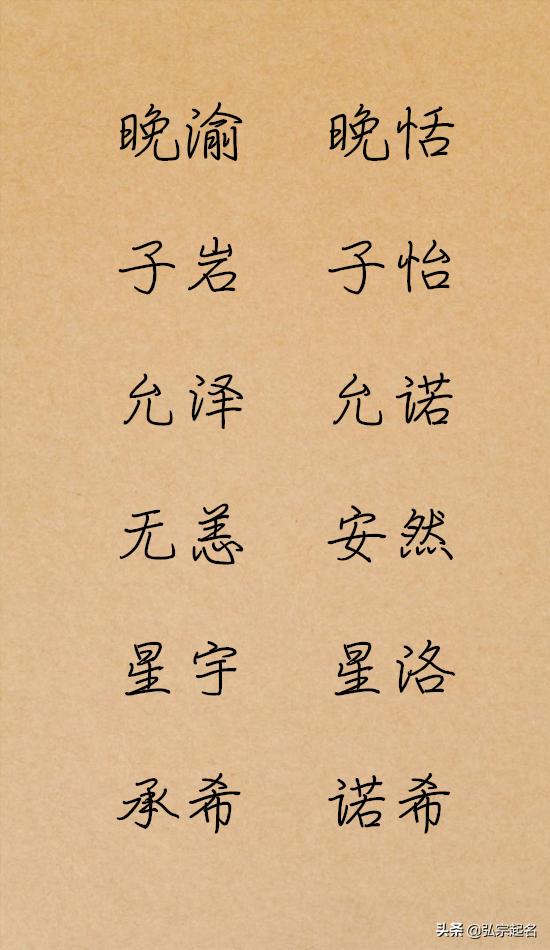 晚渝 晚恬
子岩 子怡
允泽 允诺
无恙 安然
星宇 星洛
承希 诺希
头条 @弘宗起名